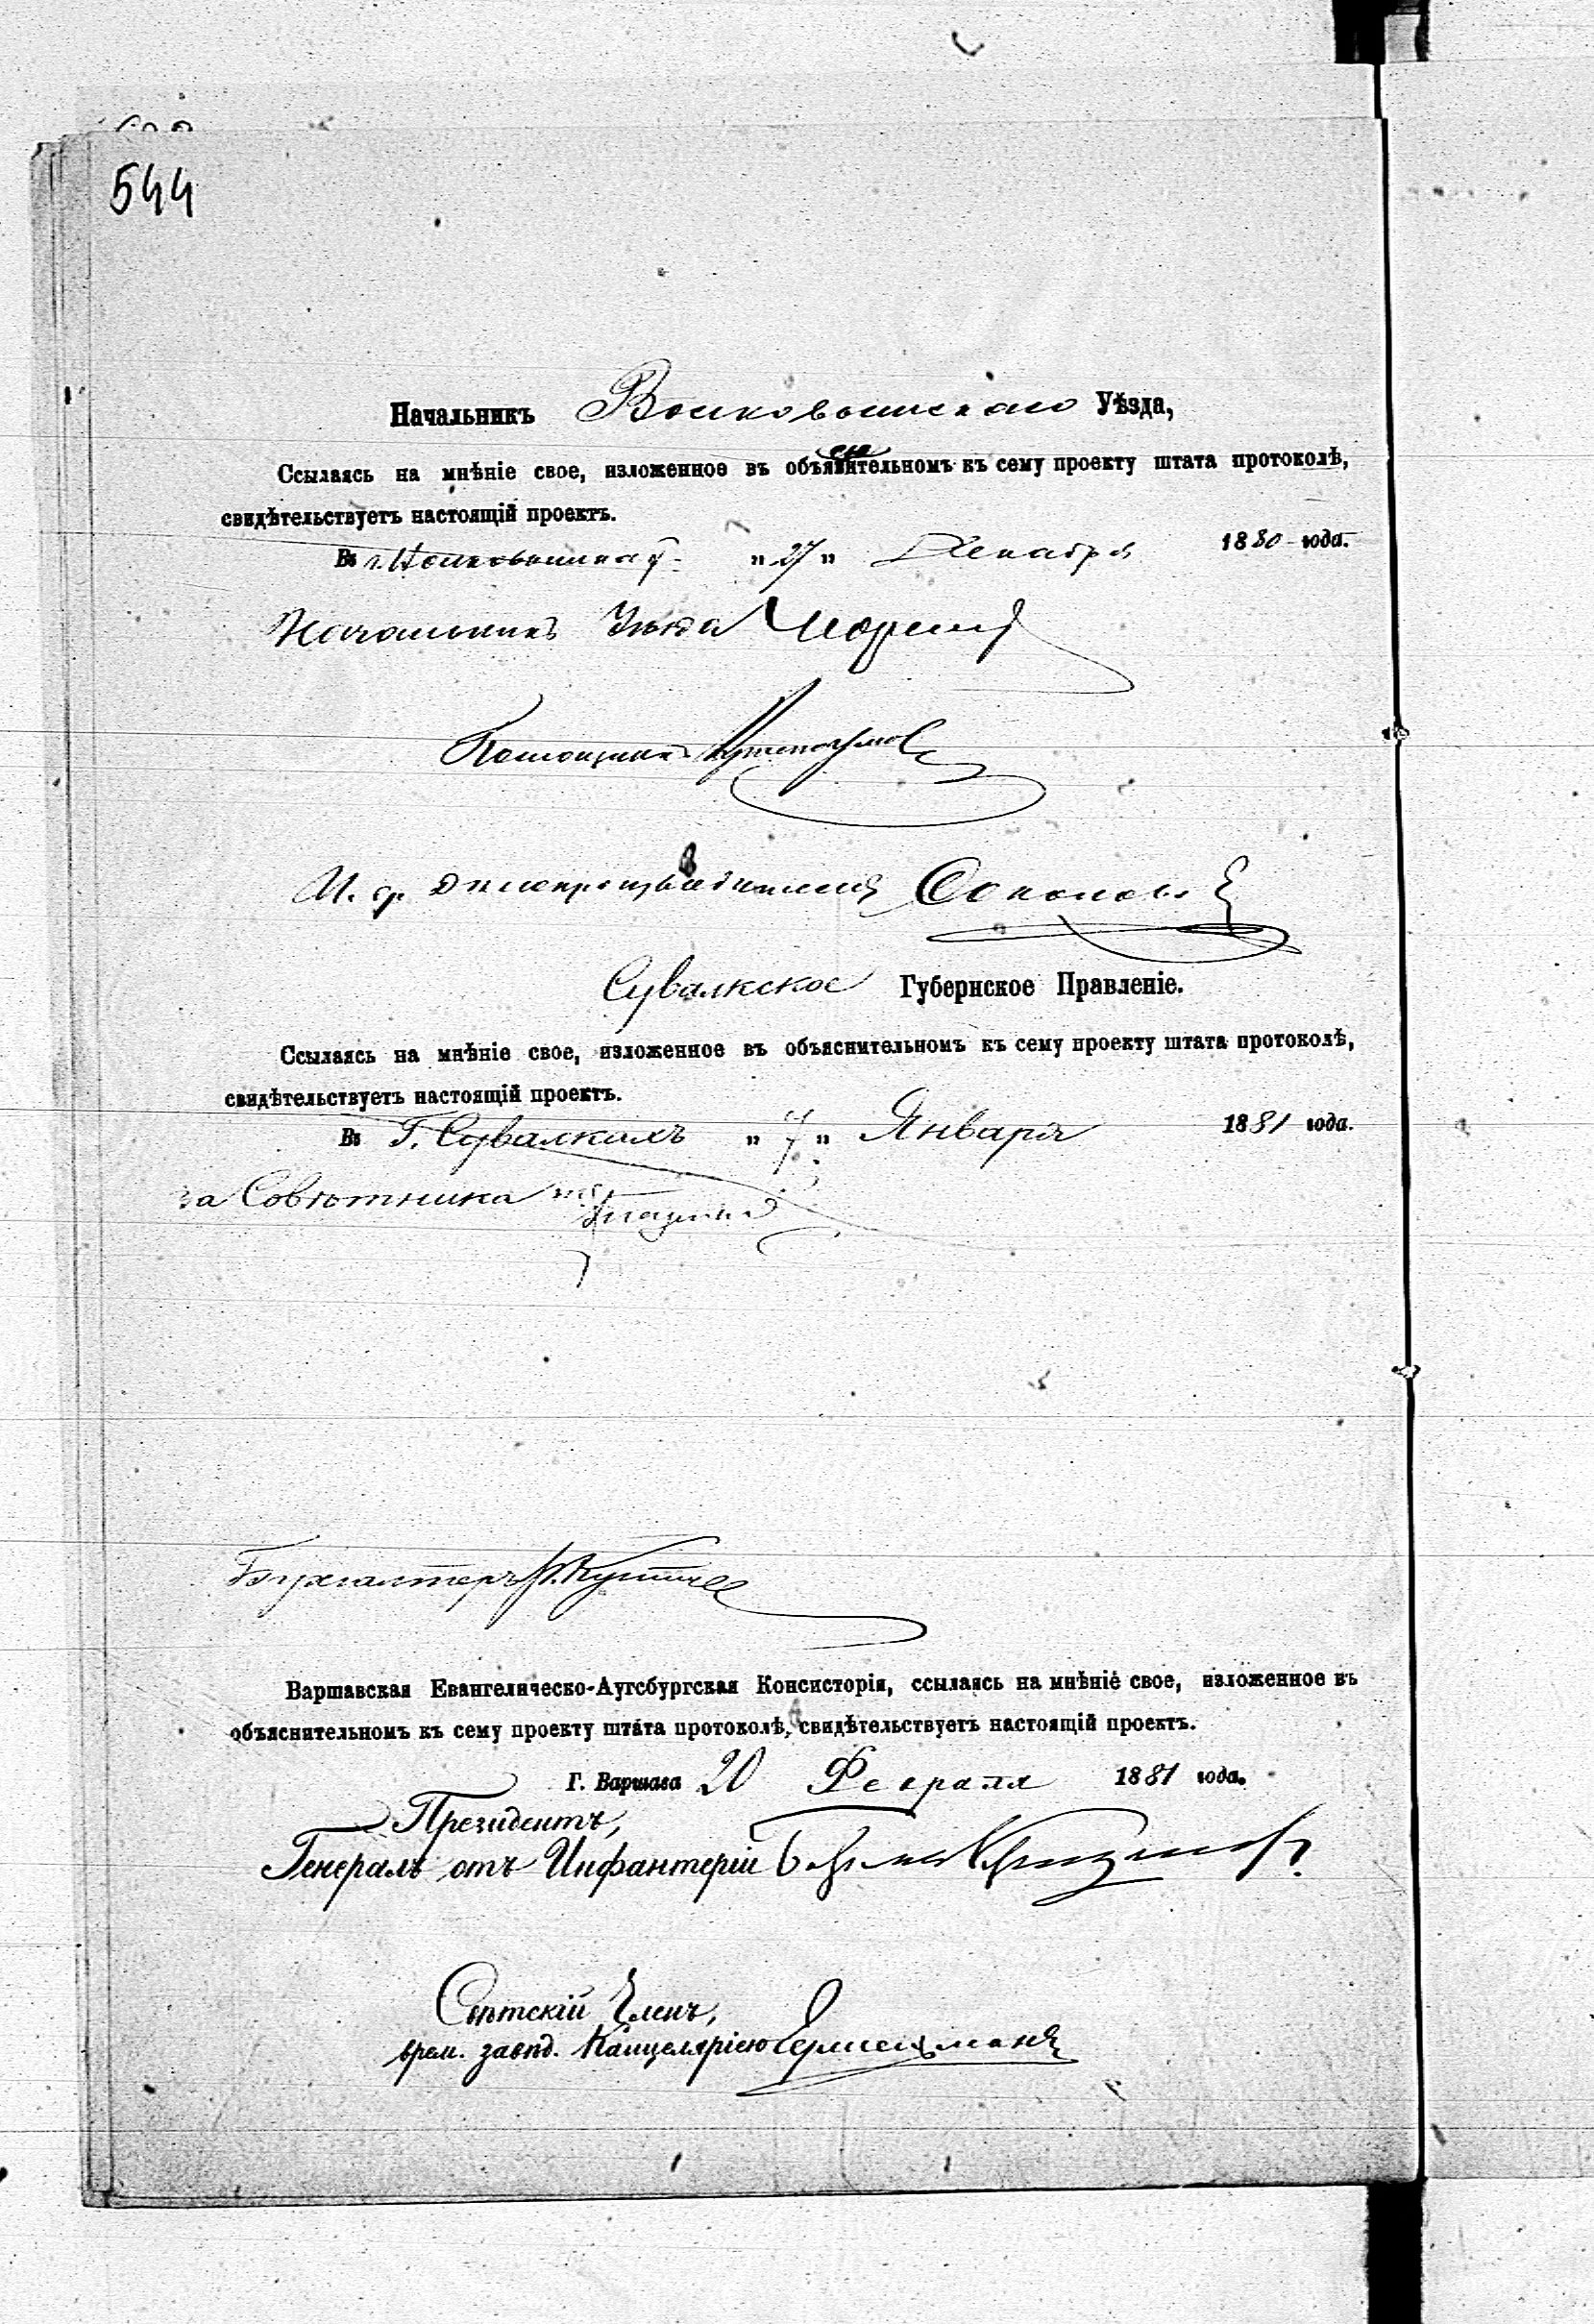 544
Начальникъ Волковышскаго Уѣзда,
Ссылаясь на мнѣніе свое, изложенное въ объяснительномъ къ сему проекту штата протоколѣ,
свидѣтельствуетъ настоящій проектъ.
Въ г. Волковышкахъ „ 27 „ Декабря 1880 года.
Начальникъ Уѣзда
Помощникъ
И. д. Дѣлопроизводителя Соколовъ
Сувалкское Губернское Правленіе.
Ссылаясь на мнѣніе свое, изложенное въ объяснительномъ къ сему проекту штата протоколѣ,
свидѣтельствуетъ настоящій проектъ.
Въ Г. Сувалкахъ „ 7 „ Января 1881 года.
за Совѣтника
Бухгалтеръ
Варшавская Евангелическо-Аугсбургская Консисторія, ссылаясь на мнѣніе свое, изложенное въ
объяснительномъ къ сему проекту штата протоколѣ, свидѣтельствуетъ настоящій проектъ.
Г. Варшава 20 Февраля 1881 года.
Президентъ,
Генералъ отъ Инфантеріи
Свѣтскій Членъ,
врем. завѣд. Канцеляріею